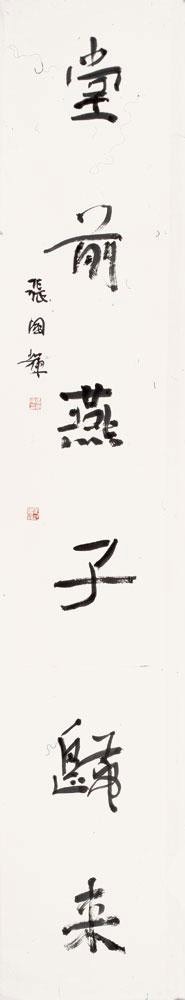 堂前燕子歸来
張國輝